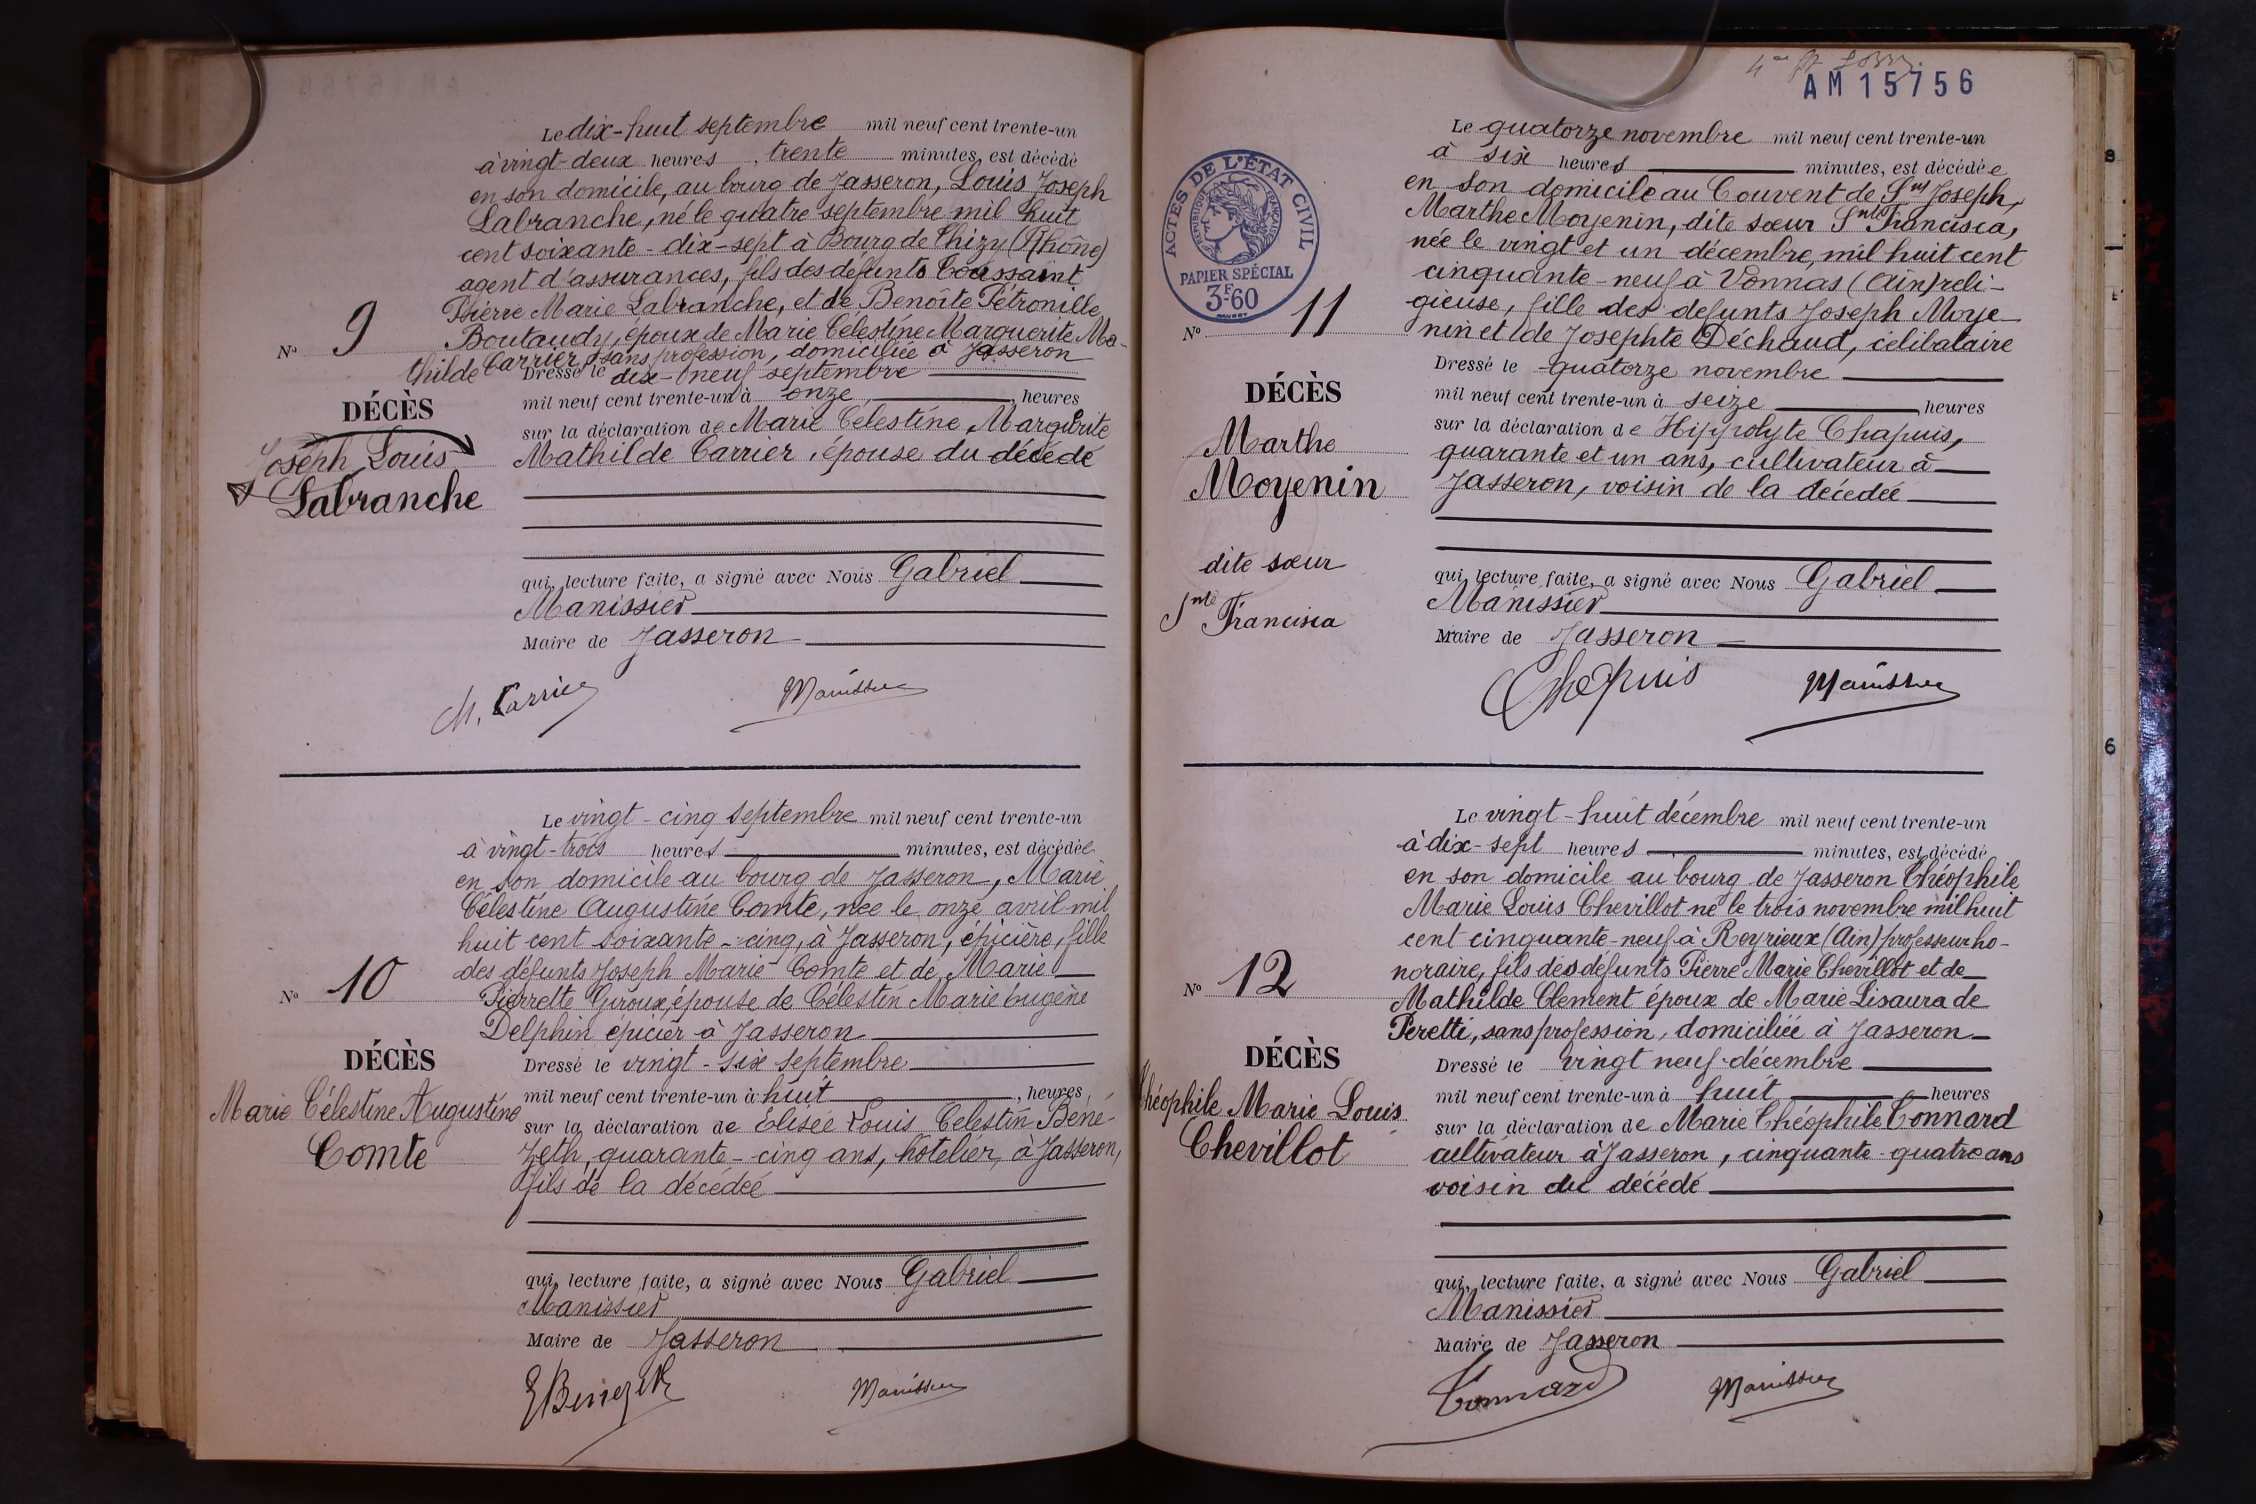 Le dix-huit septembre mil neuf cent trente-un
à vingt-deux heures, trente minutes, est décédé
en son domicile, au bourg de Jasseron, Louis Joseph
Labranche, né le quatre septembre mil huit
cent soixante-dix-sept à Bourg de Thizy (Rhône)
agent d'assurances, fils des défunts Toussaint
Pierre Marie Labranche, et de Benoîte Pétronille
Boutaudy, époux de Marie Célestine Marguerite Ma-
thilde Carrier, sans profession, domiciliée à Jasseron
No 9
DÉCÈS
Joseph Louis
Labranche
Dressé le dix-neuf septembre
mil neuf cent trente-un à onze, heures
sur la déclaration de Marie Célestine Marguerite
Mathilde Carrier, épouse du décédé
qui, lecture faite, a signé avec Nous Gabriel
Manissier
Maire de Jasseron
M. Carrier Manissier
Le vingt-cinq septembre mil neuf cent trente-un
à vingt-trois heures minutes, est décédée
en son domicile au bourg de Jasseron, Marie
Célestine Augustine Comte, née le onze avril mil
huit cent soixante-cinq, à Jasseron, épicière, fille
des défunts Joseph Marie Comte et de Marie
Pierrette Giroux, épouse de Célestin Marie Eugène
Delphin épicier à Jasseron
No 10
DÉCÈS
Marie Célestine Augustine
Comte
Dressé le vingt-six septembre
mil neuf cent trente-un à huit, heures
sur la déclaration de Elisée Louis Célestin Béné-
zeth, quarante-cinq ans, hôtelier, à Jasseron,
fils de la décédée
qui, lecture faite, a signé avec Nous Gabriel
Manissier
Maire de Jasseron
EBenezeth Manissier
AM 15756
ACTES DE L'ÉTAT CIVIL
RÉPUBLIQUE FRANÇAISE
PAPIER SPÉCIAL
3F60
Le quatorze novembre mil neuf cent trente-un
à six heures minutes, est décédée
en son domicile au Couvent de St Joseph,
Marthe Moyenin, dite sœur Snte Francisca,
née le vingt et un décembre, mil huit cent
cinquante-neuf à Vonnas (Ain) reli-
gieuse, fille des défunts Joseph Moye
nin et de Josephte Déchaud, célibataire
No 11
DÉCÈS
Marthe
Moyenin
dite sœur
Snte Francisca
Dressé le quatorze novembre
mil neuf cent trente-un à seize, heures
sur la déclaration de Hippolyte Chapuis,
quarante et un ans, cultivateur à
Jasseron, voisin de la décédée
qui, lecture faite, a signé avec Nous Gabriel
Manissier
Maire de Jasseron
Chapuis Manissier
Le vingt-huit décembre mil neuf cent trente-un
à dix-sept heures minutes, est décédé
en son domicile au bourg de Jasseron Théophile
Marie Louis Chevillot né le trois novembre mil huit
cent cinquante-neuf à Reyrieux (Ain) professeur ho-
noraire, fils des défunts Pierre Marie Chevillot et de
Mathilde Clement époux de Marie Lisaura de
Peretti, sans profession, domiciliée à Jasseron
No 12
DÉCÈS
Théophile Marie Louis
Chevillot
Dressé le vingt neuf décembre
mil neuf cent trente-un à huit, heures
sur la déclaration de Marie Théophile Tonnard
cultivateur à Jasseron, cinquante-quatre ans
voisin du décédé
qui, lecture faite, a signé avec Nous Gabriel
Manissier
Maire de Jasseron
Tonnard Manissier
6